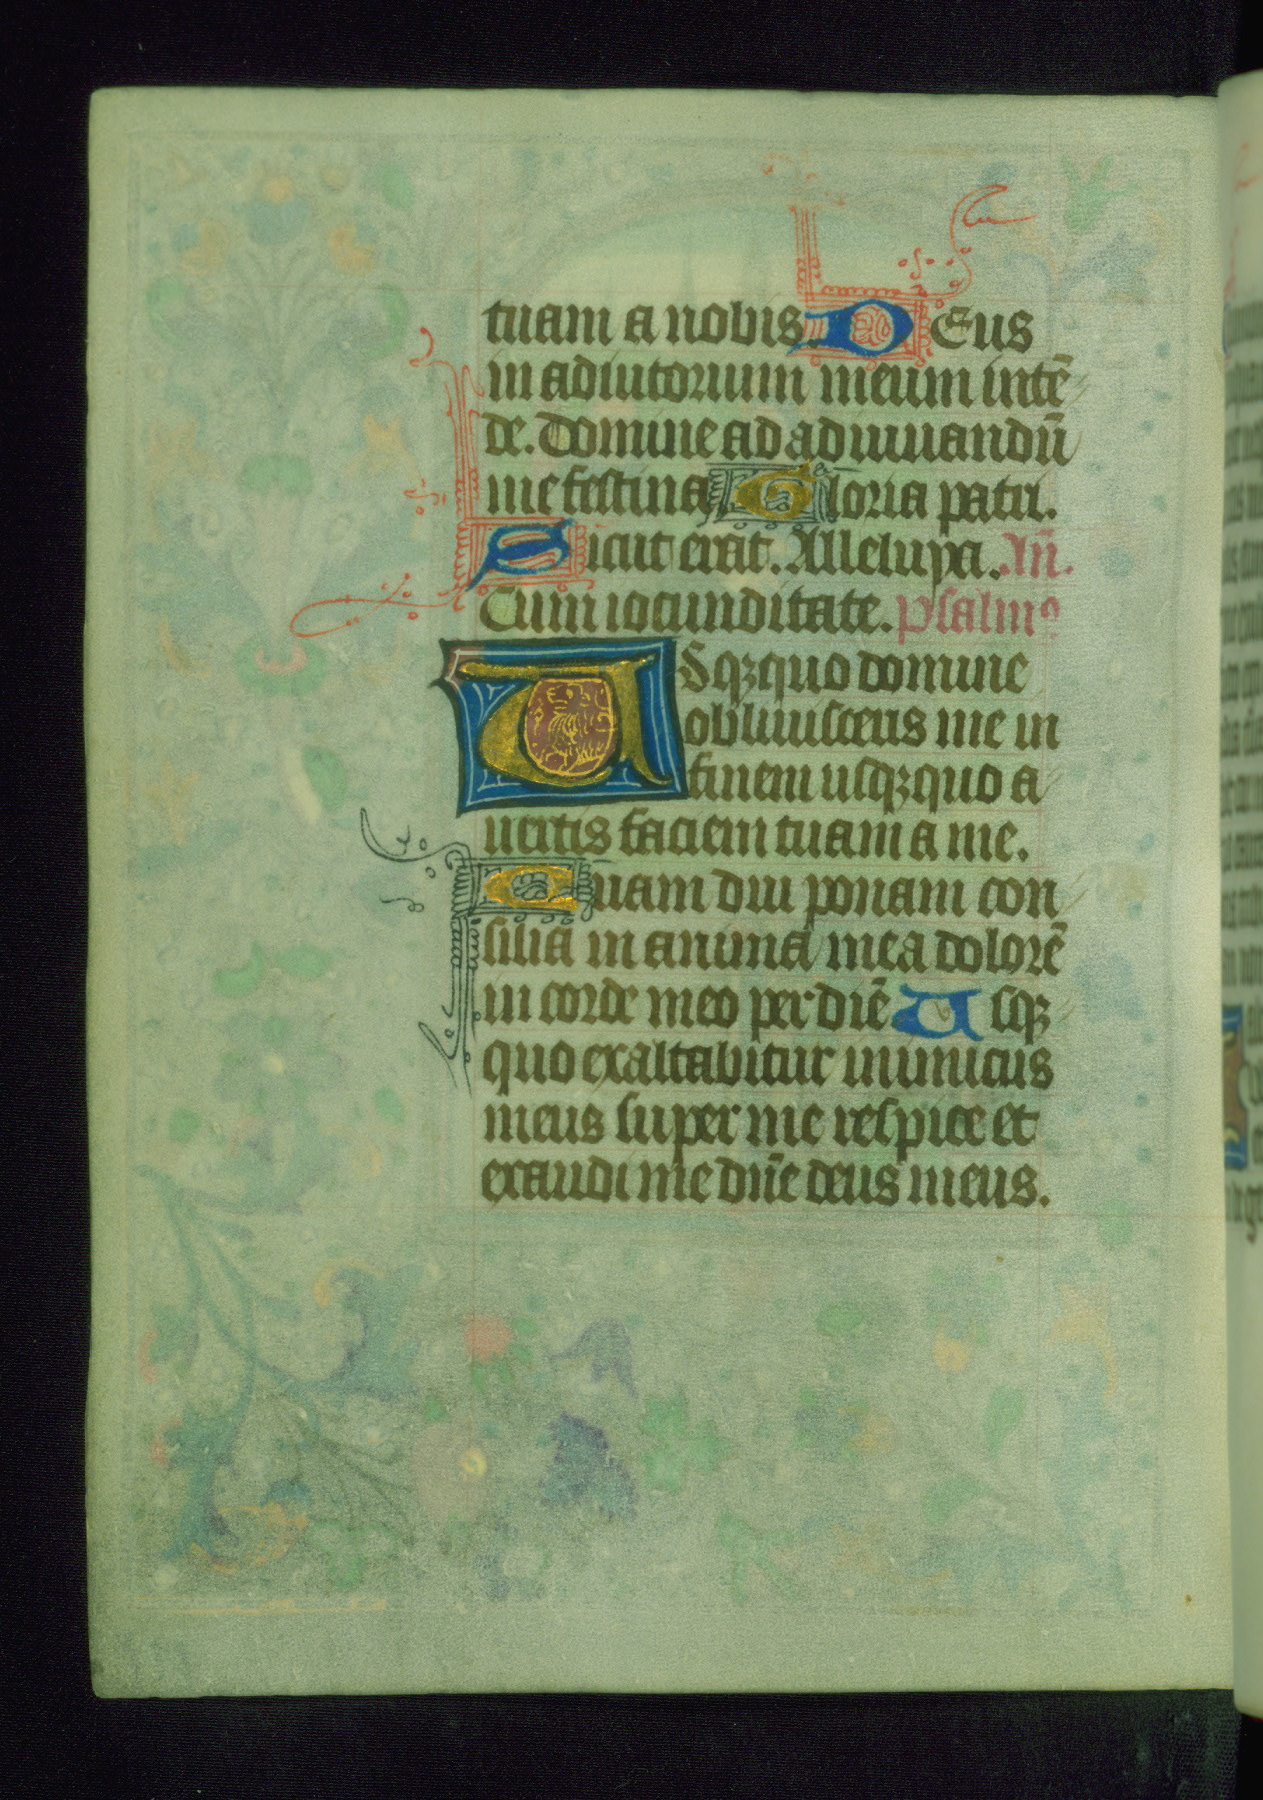 tuam a nobis. DEus
in adiutorium meum intē
de. Domine ad adiuuandū
me festina Gloria patri.
Sicut erat. Alleluya. Añ.
Cum iocunditate. Psalmꝰ
USqꝫquo domine
obliuisceris me in
finem usqꝫquo a
uertis faciem tuam a me.
Quam diu ponam con
silia in anima mea dolorē
in corde meo per diē Usqꝫ
quo exaltabitur inimicus
meus super me respice et
exaudi me dñe deus meus.